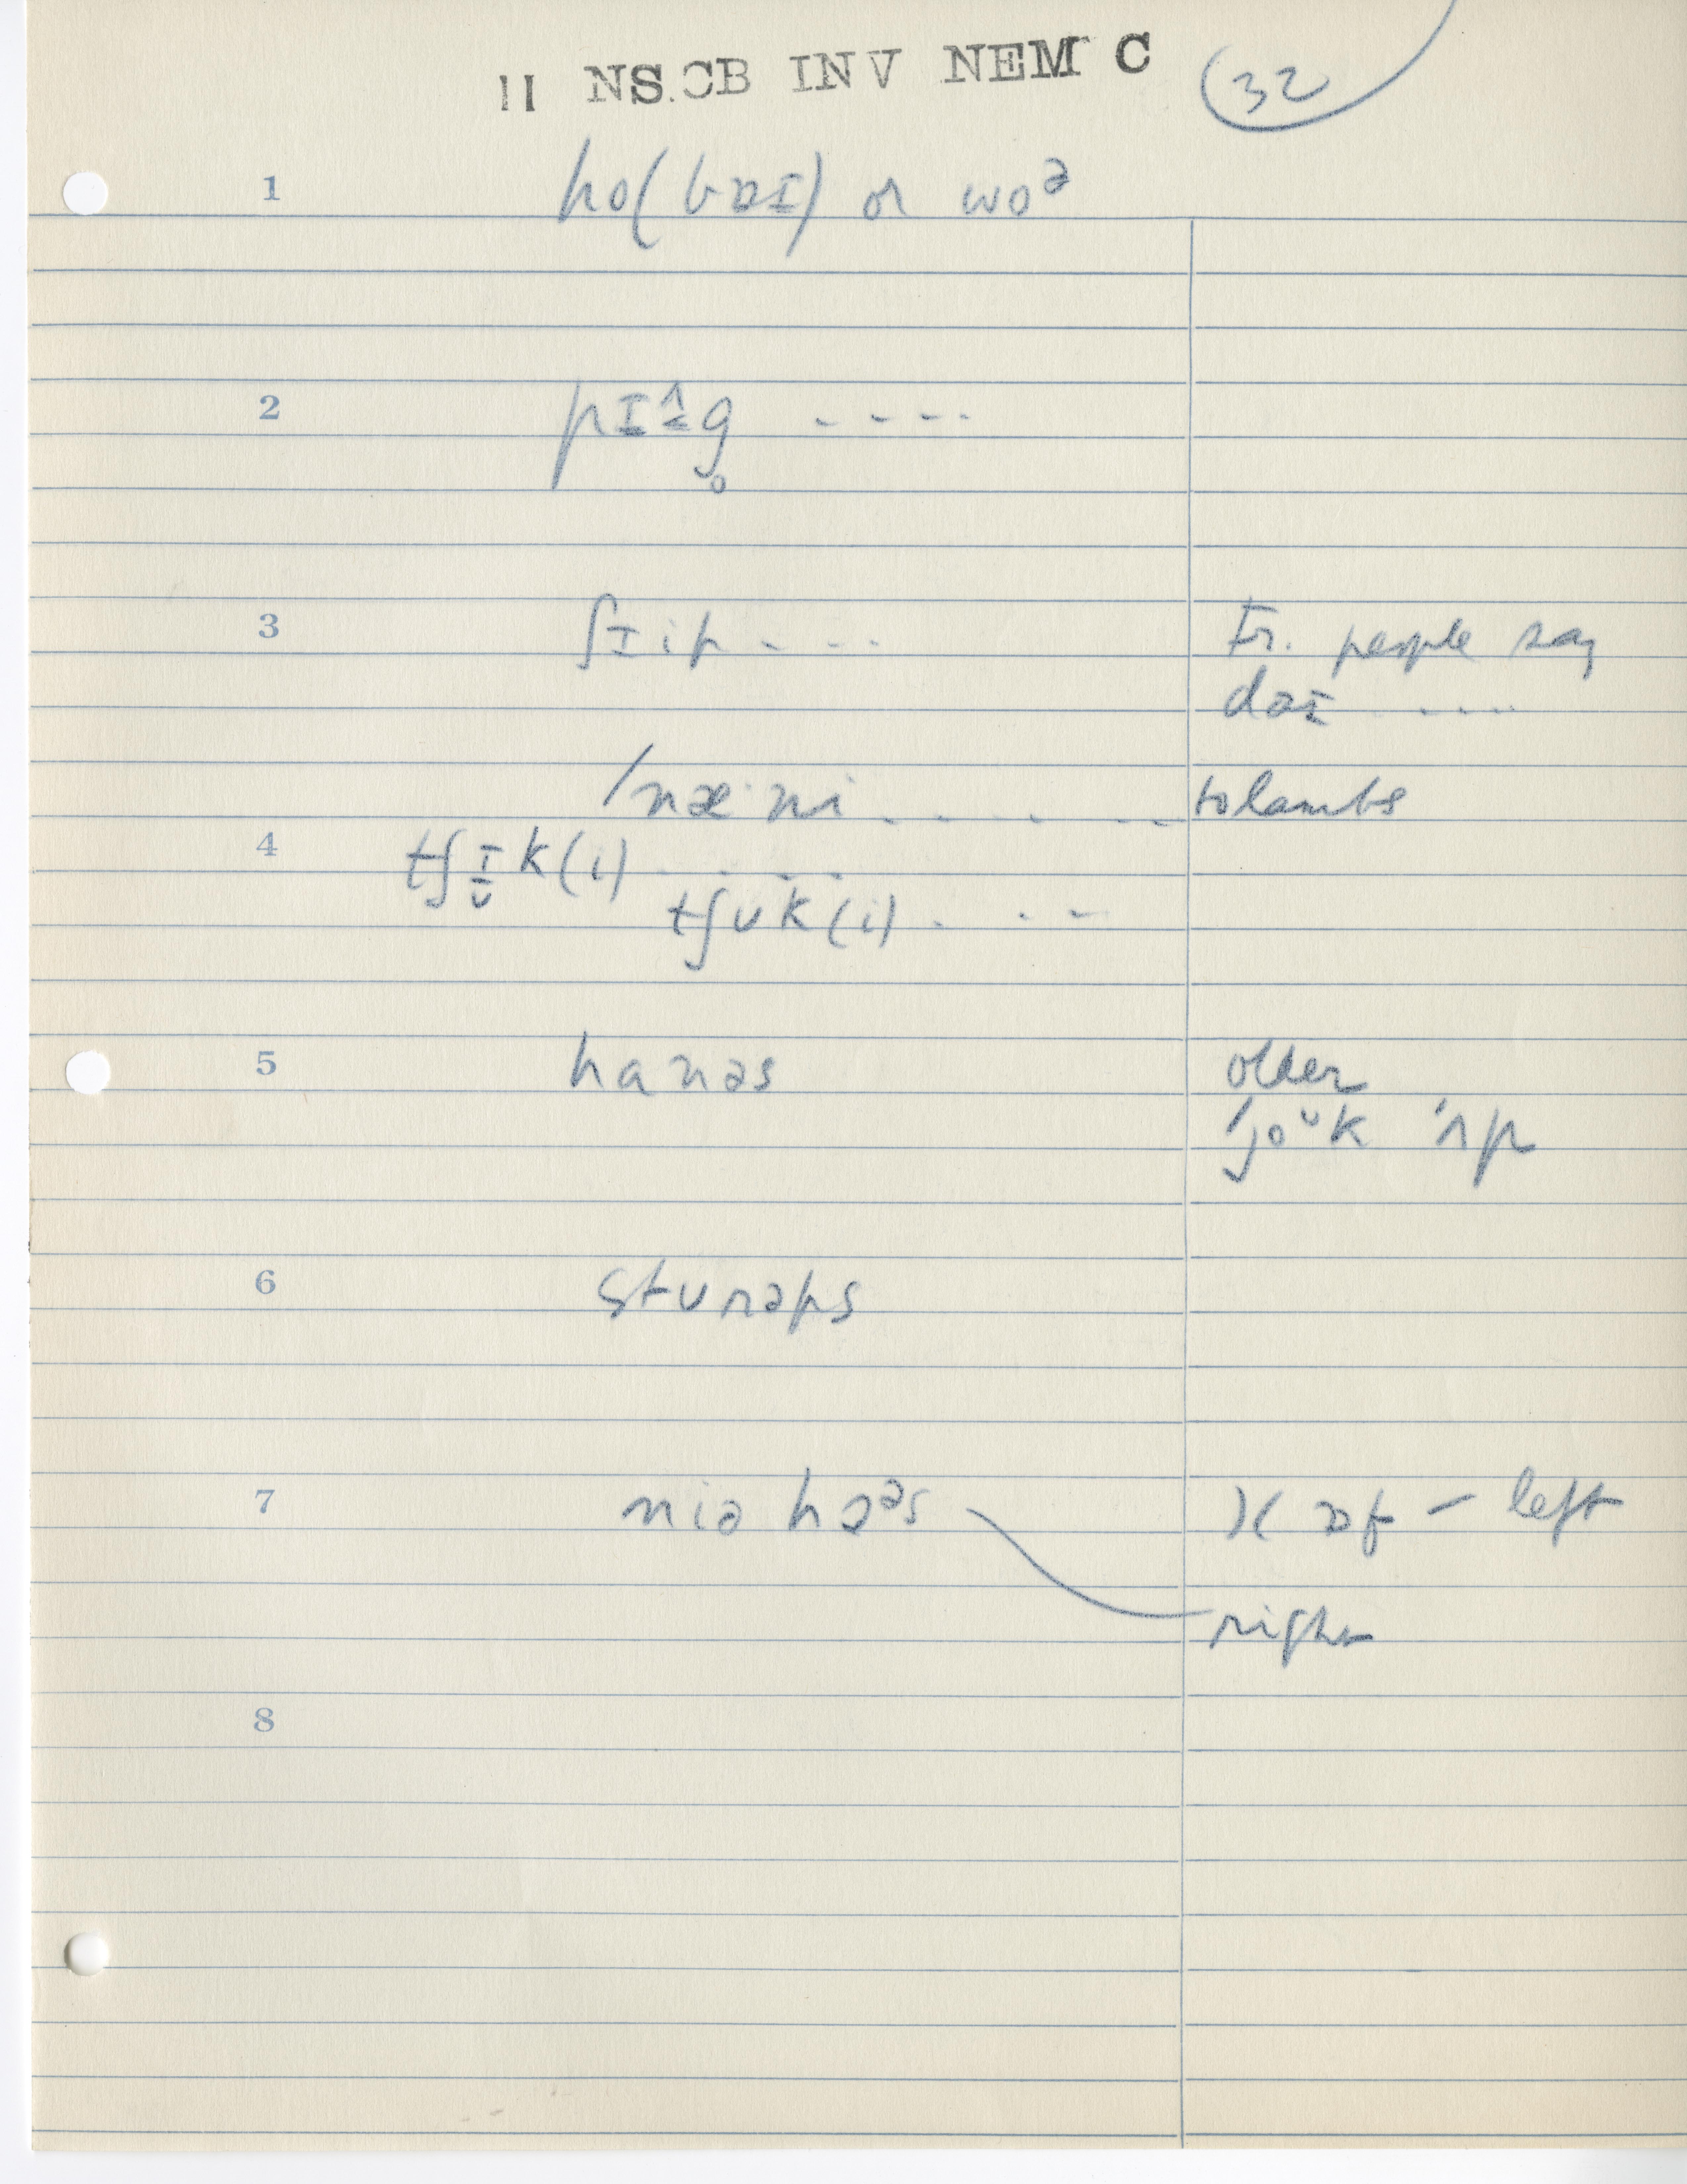 11 NS.CB INV NEM C 32
1 ho(bɒɪ) or woᵊ
2 pɪ^g̥ ----
3 ʃɪip ---- Fr. people say
daɪ ----
/næ·ni ---- to lambs
4 tʃɪk(i) ----
tʃʊk(i) ----
5 hanəs older
'joᵘk 'ʌp
6 stʊrəps
7 niə hɔᵊs )( ɒf - left
right
8